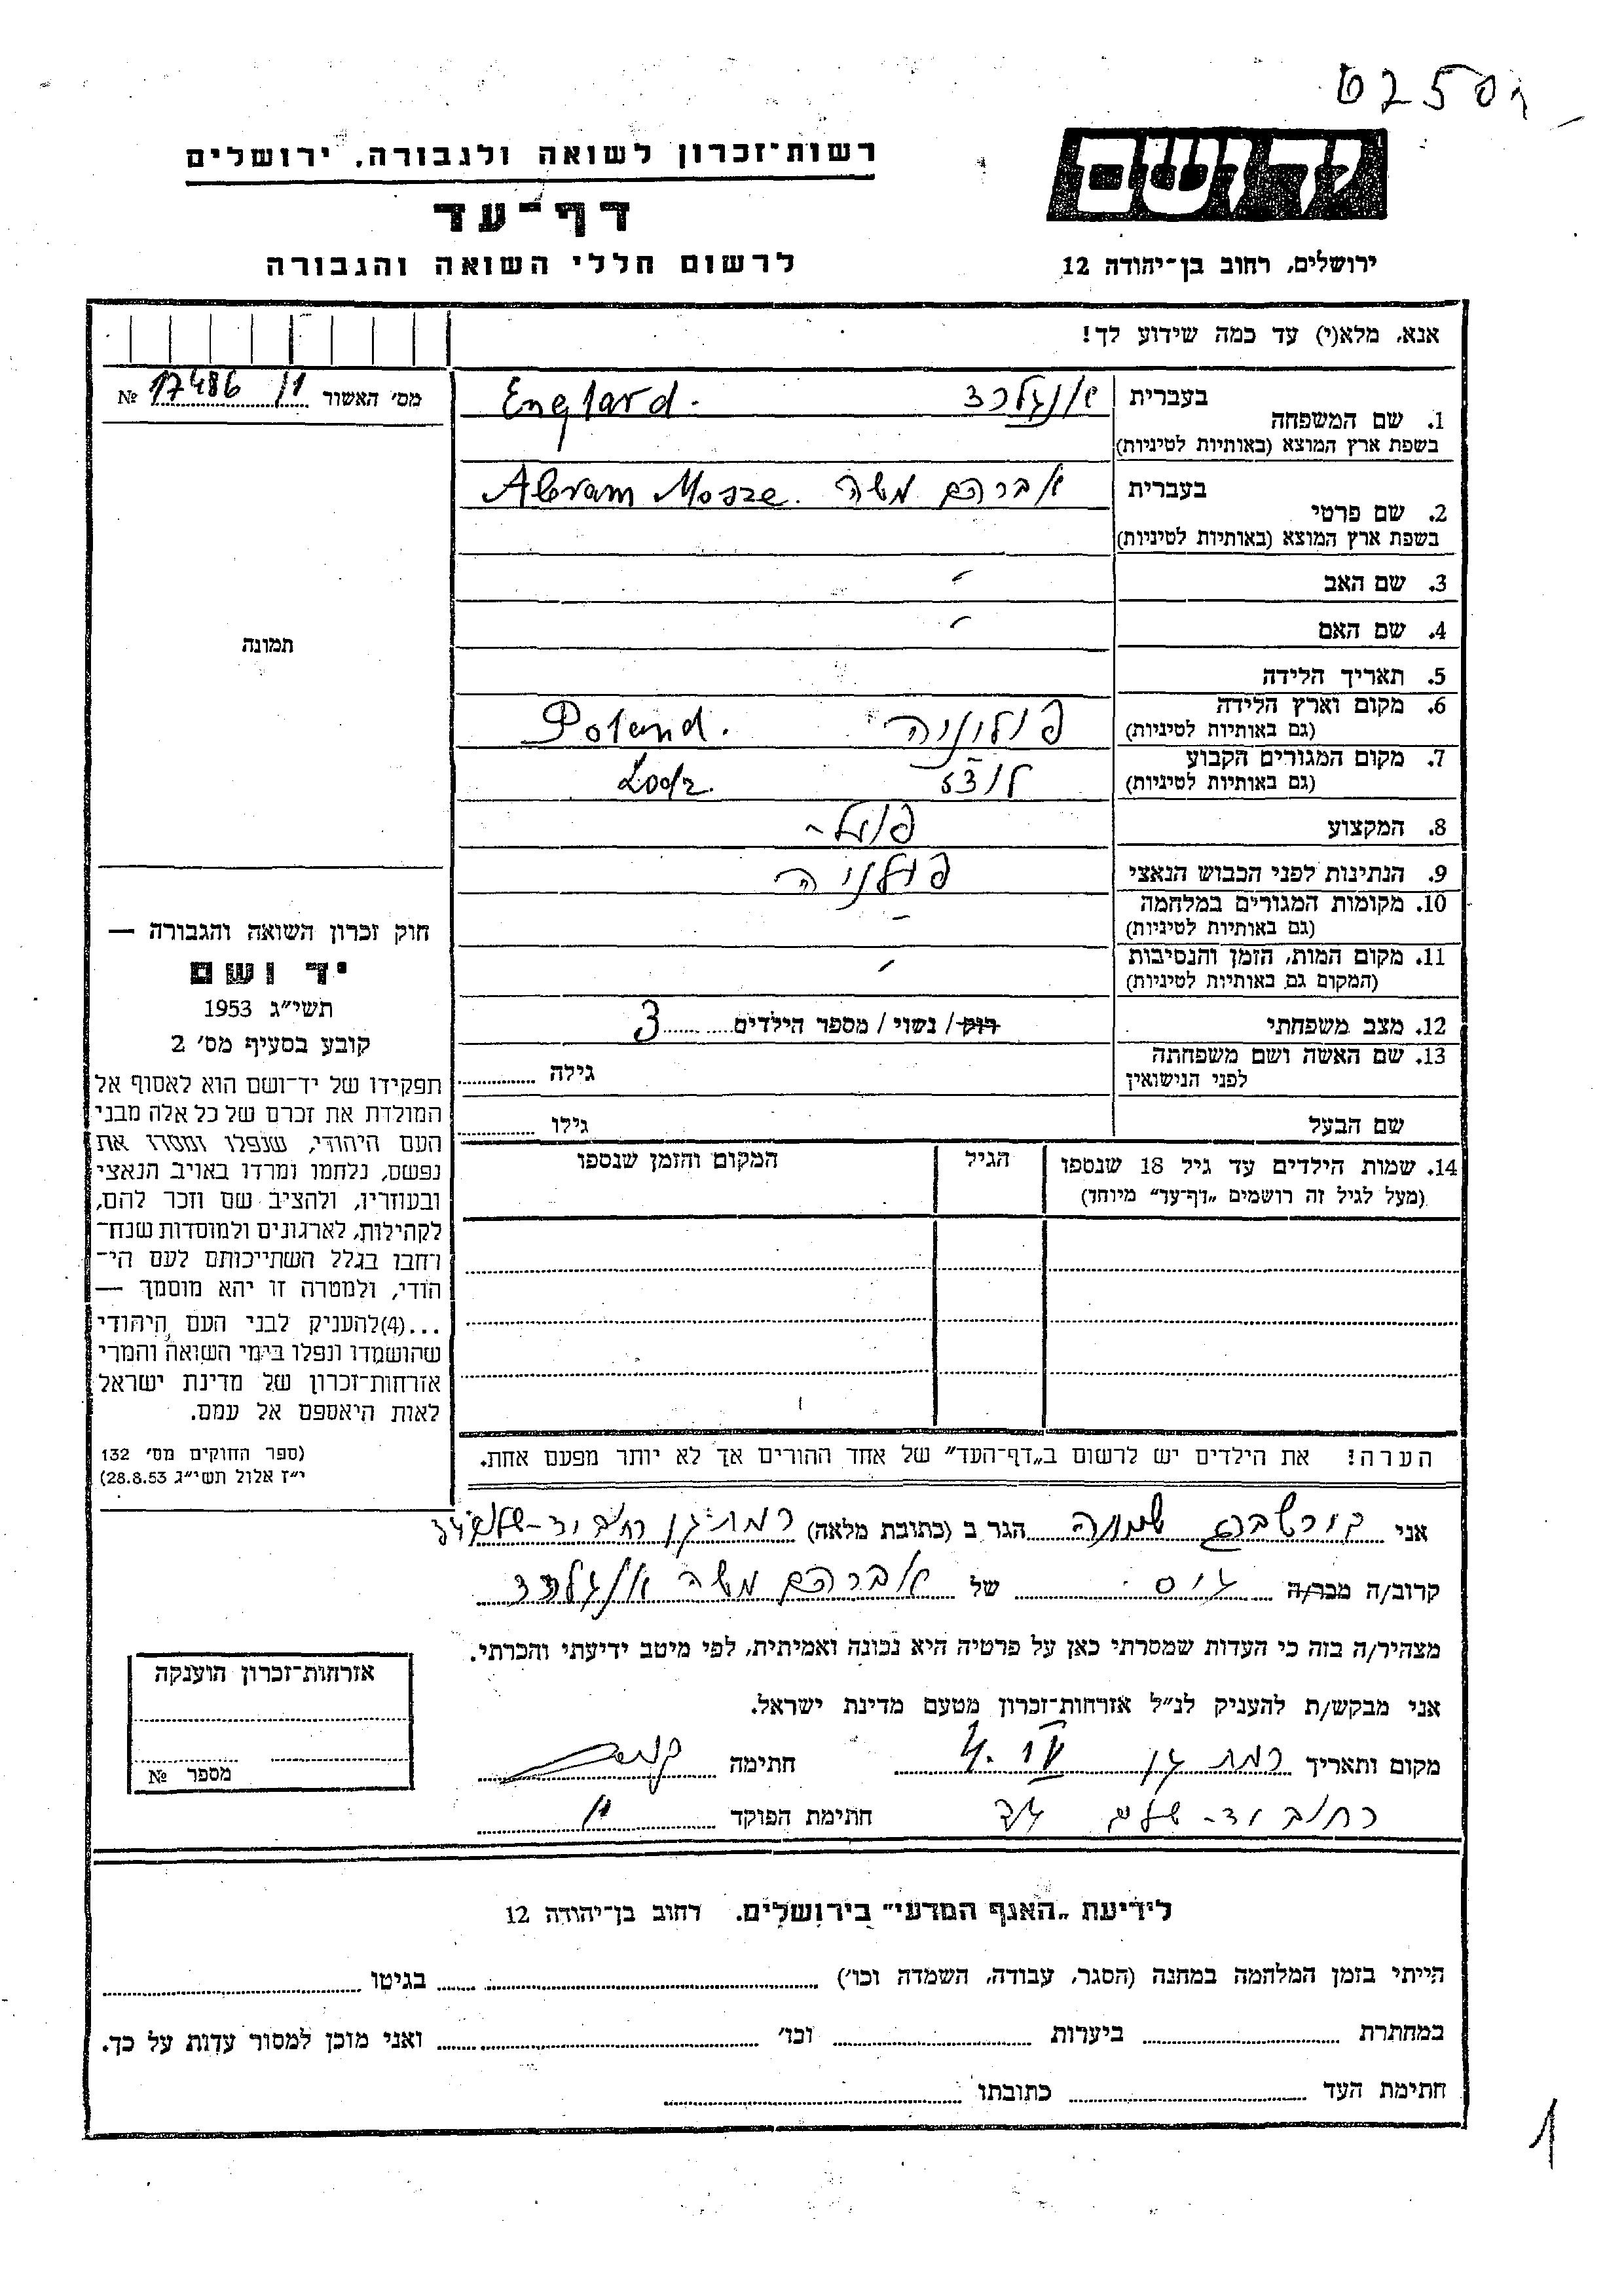 02507
יד ושם
רשות־זכרון לשואה ולגבורה, ירושלים
דף־עד
לרשום חללי השואה והגבורה
ירושלים, רחוב בן־יהודה 12
אנא, מלא(י) עד כמה שידוע לך!
מס׳ האשור 17486/1 №
1. שם המשפחה
בעברית אנגלרד Englard.
בשפת ארץ המוצא (באותיות לטיניות)
2. שם פרטי
בעברית אברהם משה Abram Mosze.
בשפת ארץ המוצא (באותיות לטיניות)
3. שם האב -
4. שם האם -
5. תאריך הלידה
6. מקום וארץ הלידה פולוניה Poland.
(גם באותיות לטיניות)
7. מקום המגורים הקבוע לודז Lodz.
(גם באותיות לטיניות)
8. המקצוע פועל-
9. הנתינות לפני הכבוש הנאצי פולניה
10. מקומות המגורים במלחמה -
(גם באותיות לטיניות)
11. מקום המות, הזמן והנסיבות -
(המקום גם באותיות לטיניות)
12. מצב משפחתי רווק / נשוי / מספר הילדים 3
13. שם האשה ושם משפחתה
לפני הנישואין
גילה
שם הבעל גילו
14. שמות הילדים עד גיל 18 שנספו
(מעל לגיל זה רושמים „דף־עד״ מיוחד)
הגיל
המקום והזמן שנספו
הערה! את הילדים יש לרשום ב„דף־העד״ של אחד ההורים אך לא יותר מפעם אחת.
תמונה
חוק זכרון השואה והגבורה —
יד ושם
תשי״ג 1953
קובע בסעיף מס׳ 2
תפקידו של יד־ושם הוא לאסוף אל
המולדת את זכרם של כל אלה מבני
העם היהודי, שנפלו ומסרו את
נפשם, נלחמו ומרדו באויב הנאצי
ובעוזריו, ולהציב שם וזכר להם,
לקהילות, לארגונים ולמוסדות שנח־
רבו בגלל השתייכותם לעם הי־
הודי, ולמטרה זו יהא מוסמך —
...(4) להעניק לבני העם היהודי
שהושמדו ונפלו בימי השואה והמרי
אזרחות־זכרון של מדינת ישראל
לאות היאספם אל עמם.
(ספר החוקים מס׳ 132
י״ז אלול תשי״ג 28.8.53)
אני שמחה הגר ב (כתובת מלאה) רמת־גן רחוב
קרוב/ה מכר/ה גיס. של אברהם משה אנגלרד
מצהיר/ה בזה כי העדות שמסרתי כאן על פרטיה היא נכונה ואמיתית, לפי מיטב ידיעתי והכרתי.
אני מבקש/ת להעניק לנ״ל אזרחות־זכרון מטעם מדינת ישראל.
מקום ותאריך רמת גן חתימה
רחוב חתימת הפוקד
אזרחות־זכרון הוענקה
מספר №
לידיעת „האגף המדעי״ בירושלים, רחוב בן־יהודה 12
הייתי בזמן המלחמה במחנה (הסגר, עבודה, השמדה וכו׳) בגיטו
במחתרת ביערות וכו׳ ואני מוכן למסור עדות על כך.
חתימת העד כתובתו
1